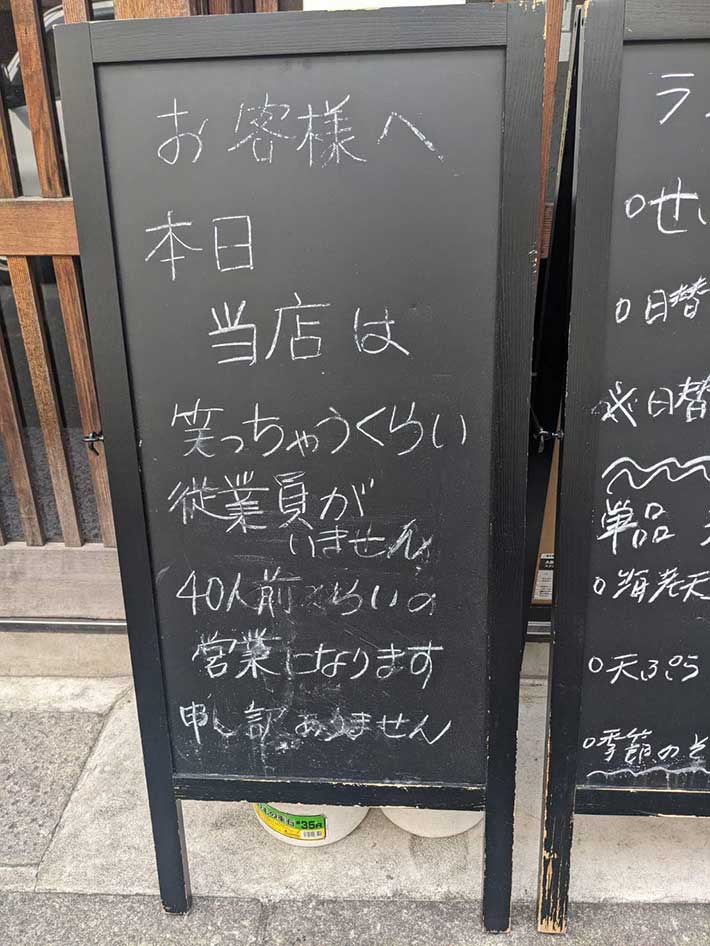 お客様へ
本日
当店は
笑っちゃうくらい
従業員が
いません
40人前くらいの
営業になります
申し訳ありません
ラ
○せい
○日替
※日替
単品
○海老天
○天ぷら
○季節のそ